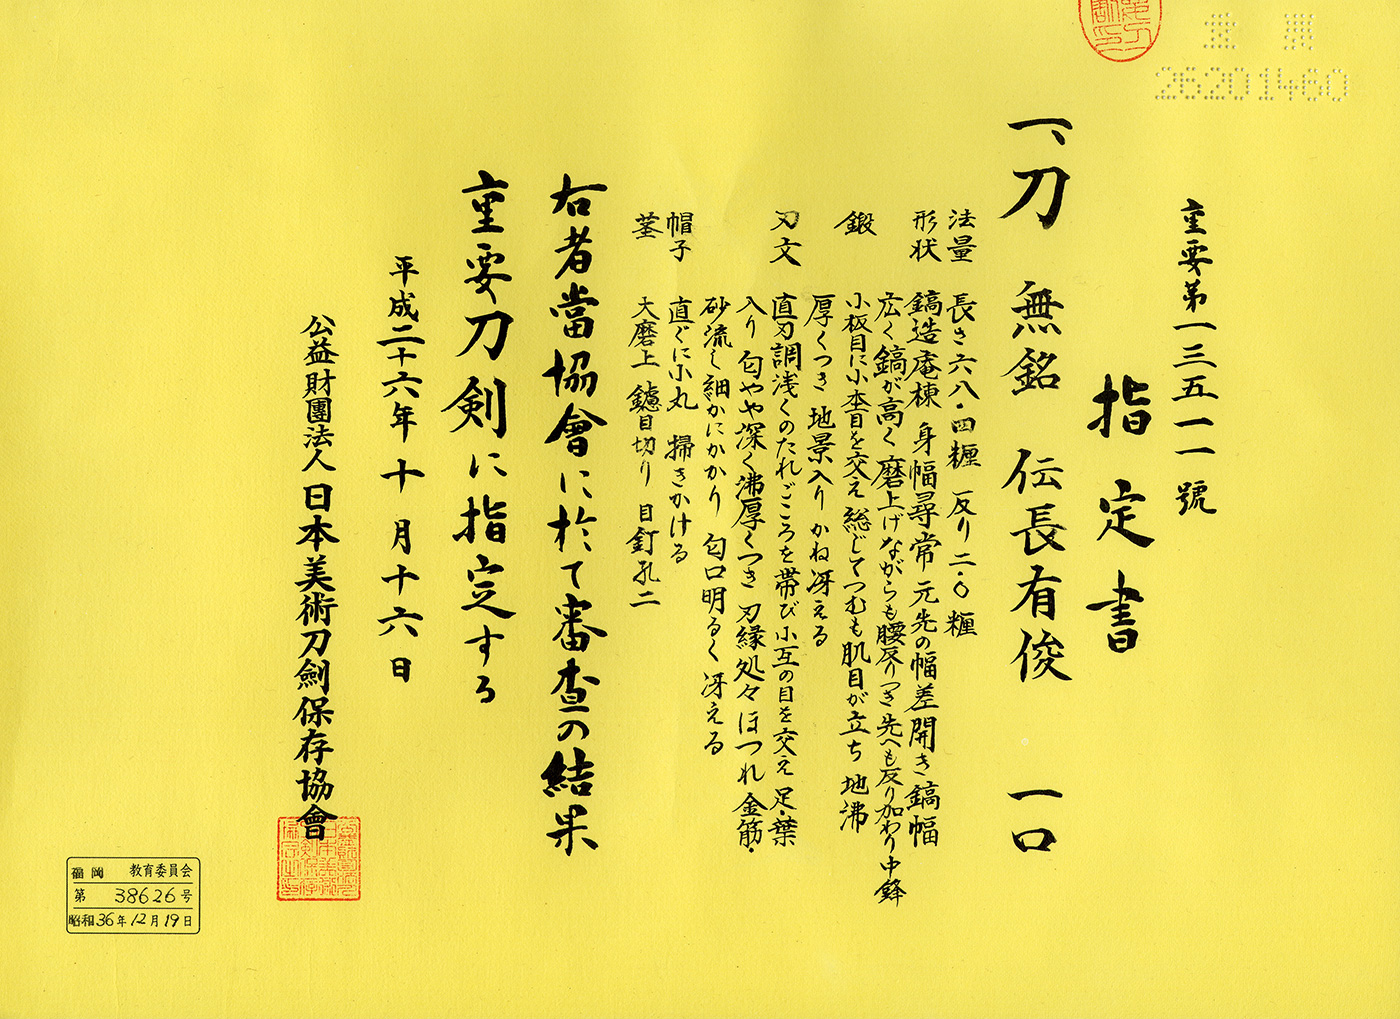 重要第一三五一一號
指定書
一、刀 無銘 伝長有俊 一口
法量 長さ六八・四糎 反り二・〇糎
形状 鎬造庵棟 身幅尋常 元先の幅差開き 鎬幅
広く鎬が高く 磨上げながらも腰反りつき 先へも反り加わり 中鋒
鍛 小板目に小杢目を交え 総じてつむも肌目が立ち 地沸
厚くつき 地景入り かね冴える
刃文 直刃調浅くのたれごころを帯び 小互の目を交え 足・葉
入り 匂やや深く 沸厚くつき 刃縁処々ほつれ 金筋・
砂流し細かにかかり 匂口明るく冴える
帽子 直ぐに小丸 掃きかける
茎 大磨上 鑢目切り 目釘孔二
右者當協會に於て審査の結果
重要刀剣に指定する
平成二十六年十月十六日
公益財團法人 日本美術刀劍保存協會
重要
26201460
福岡 教育委員会
第 38626 号
昭和36年12月19日